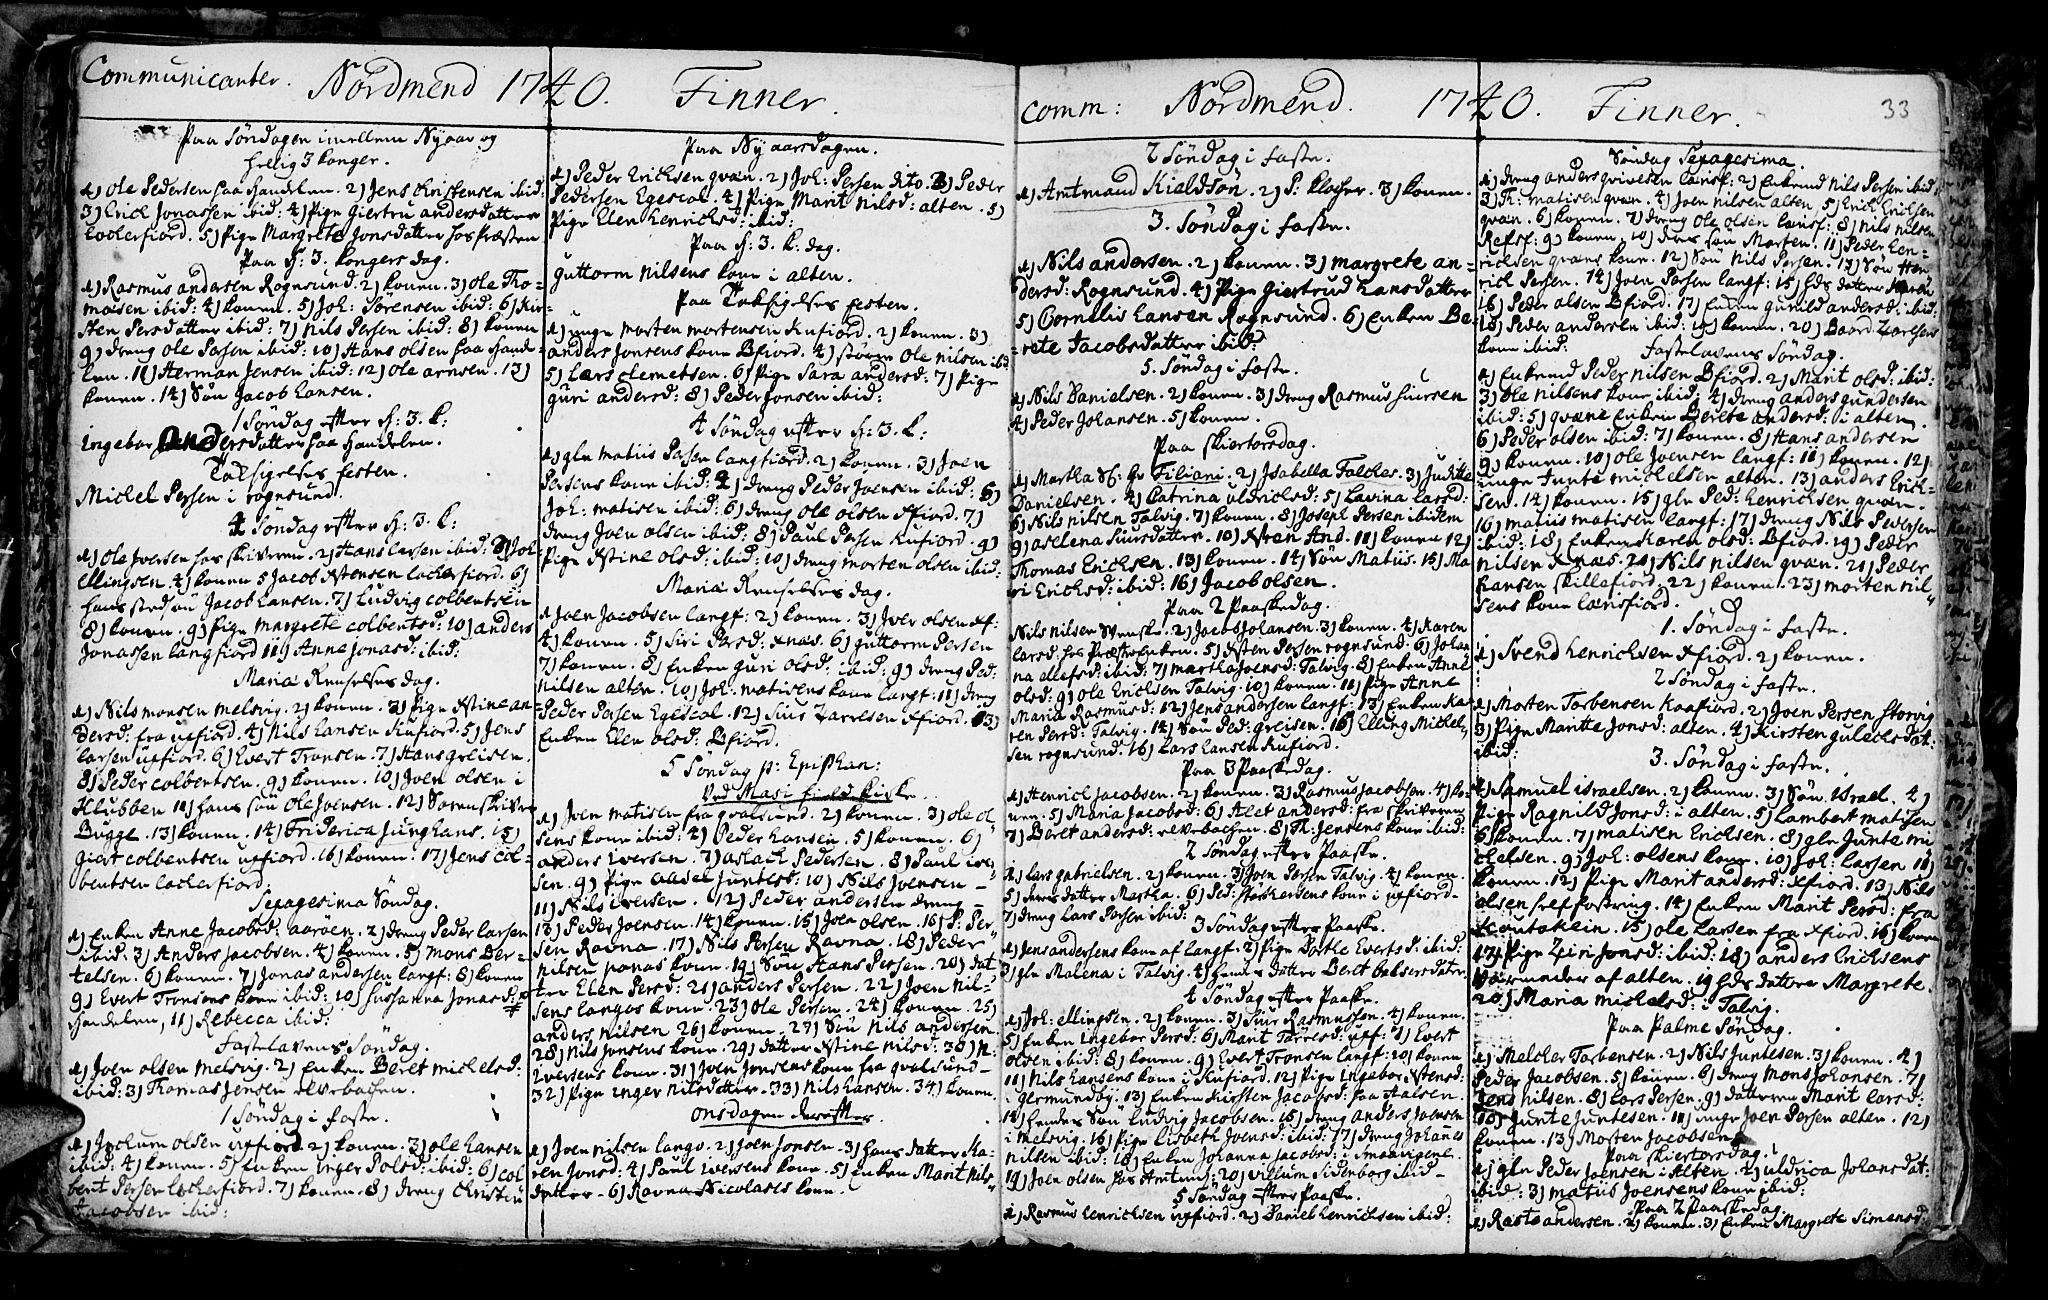 Communicanter. Nordmend 1740. Finner.
Paa Søndagen imellem Nyaar og
hellig 3 konger.
1) Ole Pedersen paa Handelen. 2) Jens Christensen ibid:
3) Erich Jonassen ibid: 4) Pige Giertru andersdatter
Locherfiord. 5) Pige Margrete Jonsdatter hos Præsten
Paa H: 3. Kongers dag.
1) Rasmus andersen Rognsund. 2) konen. 3) Ole Tho-
mæsen ibid: 4) konen. 5) Joh: Sørensen ibid: 6) Kir-
sten Persdatter ibid: 7) Nils Persen ibid: 8) konen
9) dreng Ole Persen ibid: 10) Hans olsen paa Hand-
len. 11) Herman Jensen ibid: 12) Ole arnsen. 13)
konen. 14) Søn Jacob Hansen.
1 Søndag efter H: 3. K:
Ingebor Andersdatter paa Handelen.
Taksigelses festen.
Michel Persen i rognsund.
4 Søndag efter H: 3. K:
1) Ole Iversen hos skriveren. 2) Hans Larsen ibid: 3) Joh:
Ellingsen. 4) konen 5 Jacob Xstensen Locherfiord. 6)
hans stedsøn Jacob Hansen. 7) Ludvig Colbentsen
8) konen. 9) Pige Margrete Colbentsd: 10) anders
Jonassen langfiord 11) Anne Jonasd: ibid:
Mariæ Renselses dag.
1) Nils monsen melsvig. 2) konen. 3) Pige Xstine an-
dersd: fra upfiord. 4) Nils Hansen Kufiord. 5) Jens
Larsen upfiord. 6) Evert Tronsen. 7) Hans greisen.
8) Peder Colbentsen. 9) konen. 10) Joen olsen i
Klubben 11) hans søn Ole Joensen. 12) Sorenskriver
Bugge. 13) konen. 14) Friderica Junghans. 15)
Giert Colbentsen upfiord. 16) konen. 17) Jens Col-
bentsen Locherfiord
Sexagesima Søndag.
1) Enken Anne Jacobsd: aarøen. 2) dreng Peder Larsen
ibid: 3) Anders Jacobsen. 4) konen. 5) Mons Ber-
telsen. 6) konen. 7) Jonas andersen langf: 8) konen
9) Evert Tronsens kone ibid: 10) Susanna Jonasd:
Handelen, 11) Rebecca ibid:
Fastelavens Søndag.
1) Joen olsen melsvig. 2) Enken Beret michelsd:
ibid: 3) Thomas Jensen elvebachen.
1 Søndag i faste.
1) Jochum olsen upfiord 2) konen. 3) Ole Hansen
ibid: 4) konen. 5) Enken Inger Polsd: ibid: 6) Col
bent Persen Locherfiord. 7) konen. 8) dreng Christen
Jacobsen ibid:
Paa Nyaarsdagen.
1) Peder Erichsen qvæn. 2) Joh: Persen dito. 3) Peder
Pedersen Egescal. 4) Pige Marit Nilsd: alten. 5)
Pige Elen Henrichsd: ibid:
Paa H: 3. K. dag.
Guttorm Nilsens kone i alten.
Paa Taksigelses festen.
1) unge Morten Mortensen Kufiord. 2) konen. 3)
anders Jonsens kone Bfiord. 4) større Ole Nilsen ibd
5) Lars Clemetsen. 6) Pige Sara andersd: 7) Pige
Guri andersd: 8) Peder Jonsen ibid:
4 Søndag efter H: 3. K:
1) gln Matiis Persen langfiord. 2) konen. 3) Joen
Persens kone ibid: 4) dreng Peder Joensen ibid: 5)
Joh: matisen ibid: 6) dreng Ole olsen Xfiord. 7)
dreng Joen olsen ibid: 8) Paul Persen Kufiord. 9)
Pige Xstine olsd: ibid: 10) dreng morten olsen ibid:
Mariæ Renselses dag.
1) Joen Jacobsen langf: 2) konen. 3) Iver olsen Xf:
4) konen. 5) Siri Persd: Xnæs. 6) Guttorm Persen
7) konen. 8) Enken Guri olsd: ibid: 9) dreng Ped:
Nilsen alten. 10) Joh: matisens kone langf: 11) dreng
Peder Persen Egescal. 12) Siur Zarelsen Xfiord. 13)
Enken Elen olsd: Bfiord.
5 Søndag p: Epiphan:
Ved Masi field kirke
1) Joen matisen fra qvalsund. 2) konen. 3) Ole Ol
sens kone ibid: 4) Peder Hansen. 5) konen. 6)
anders Iversen. 7) aslach Pedersen. 8) Paul Iver
sen. 9) Pige Juntesd: 10) Nils Joensen –
11) Nils iversen. 12) Peder andersen dreng –
13) Peder Joensen. 14) konen. 15) Joen olsen. 16) P: Per-
sen Ravna. 17) Nils Persen Ravna. 18) Peder
Nilsen panas kone. 19) Søn Hans Persen. 20) dat
ter Elen Persd: 21) anders Persen. 22) Joen Nil-
sens langes kone. 23) Ole Persen. 24) konen. 25)
anders Nilsen 26) konen. 27) Søn Nils andersen
28) Nils Jonsens kone. 29) datter Xstine Nilsd: 30) N:
Iversens kone. 31) Joen Jonsens kone fra qvalsund –
32) Pige Inger Nilsdatter. 33) Nils Hansen. 34) konen.
onsdagen derefter
1) Joen Nilsen lango. 2) Joen Jonsen. 3) hans datter Ka-
ren Jonsd: 4) Paul Iversens kone. 5) Enken Marit Nils-
datter – 6) Ravna Nicolases kone.
Comm: Nordmend. 1740. Finner. 33
2 Søndag i faste.
1) Amtmand Kieldsøn. 2) P: klocher. 3) konen.
3. Søndag i faste.
1) Nils andersen. 2) konen. 3) margrete an-
dersd: Rognsund. 4) Pige Giertrud Hansdatter
5) Cornelis Hansen Rognsund. 6) Enken Be-
rete Jacobsdatter ibid:
5. Søndag i faste.
1) Nils Danielsen. 2) konen. 3) dreng Rasmus Siursen
4) Peder Johansen. 5) konen.
Paa skiertorsdag.
1) Martha Filiani. 2) Isabella Falches. 3) Judithe
Danielsen. 4) Catrina uldrichsd: 5) Lavina Larsd:
6) Nils Nilsen Talvig. 7) konen. 8) Joseph Persen ibidem
9) aselena Siursdatter. 10) Xren And. 11) konen 12)
Thomas Erichsen. 13) konen. 14) Søn Matiis. 15) Ma
ri Erichsd: ibid: 16) Jacob olsen.
Paa 2 Paaskedag.
Nils Nilsen Svenske. 2) Jacob Johansen. 3) konen. 4) Karen
Larsd: hos Præste Enken. 5) Osten Persen rognsund. 6) Johan
na ellefsd: ibid: 7) martha Joensd: Talvig. 8) Enken Anne
olsd: 9) Ole Erichsen Talvig. 10) konen. 11) Pige Anne
Maria Rasmusd: 12) Jens andersen langf: 13) Enken Ka
ren Persd: Talvig. 14) Søn Ped: greisen. 15) Elling Michel-
sen rognsund. 16) Lars Hansen Kufiord.
Paa 3 Paaskedag.
1) Henrich Jacobsen. 2) konen. 3) Rasmus Jacobsen. 4) ko-
nen. 5) Maria Jacobsd: 6) Alet andersd: fra skriveren
7) Beret andersd: elvebachen. 8) Th: Jensens kone ibid:
2 Søndag efter Paaske.
1) Lars gabrielsen. 2) konen. 3) Joen Persen Talvig. 4) konen.
5) deres datter Martha. 6) Ped: kone i upfiord –
7) dreng Lars Persen ibid:
3 Søndag efter Paaske.
1) Jens andersens kone af langf: 2) Pige Dorthe Evertsd: ibid:
3) gln Malena i Talvig. 4) hendes datter Beret
4 Søndag efter Paaske.
1) Joh: ellingsen. 2) konen. 3) Siur Rasmussøn. 4) konen.
5) Enken Ingebor Persd: 6) Marit Tarelsd: upf: 7) Evert
olsen ibid: 8) konen. 9) Evert Tronsen langf: 10) konen
11) Nils Hansens kone i Kufiord. 12) Pige Ingebor Xstensd:
i Germundøy. 13) Enken Kirsten Jacobsd: paa Aalsen.
14) hendes Søn Ludvig Jacobsen. 15) dreng anders Joensen
i Melsvig. 16) Pige Lisbeth Joensd: ibid: 17) dreng Johannes
Nilsen ibid: 18) Enken Johanna Jacobsd: i Smaavigene.
19) Joen olsen hos Amtmd: 20) villum Sidenborg ibid –
5 Søndag efter Paaske.
1) Rasmus Henrichsen upfiord. 2) Daniel Henrichsen ibid:
Søndag Sexagesima.
1) dreng anders qvivesen larisf: 2) Enkemd Nils Persen ibid:
3) Th: matisen qvæn. 4) Joen Nilsen alten. 5) Erich Erichsen
qvæn. 6) konen. 7) dreng Ole olsen larisf: 8) Nils Nilsen
Refsf: 9) konen. 10) deres søn Morten. 11) Peder Hen-
richsen qvæns kone. 12) Søn Nils Persen. 13) Søn Hen
rich Persen. 14) Joen Persen langf: 15) hds datter Karen
16) Peder olsen Bfiord. 17) Enken Gunild andersd: ibid:
18) Peder andersen ibid: 19) konen. 20) Baard Zarelsens
kone ibid:
Fastelavens Søndag.
1) Enkemd Peder Nilsen Bfiord. 2) Marit olsd: ibid:
3) Ole Nilsens kone ibid: 4) dreng anders gundersen
ibid: 5) qvæne Enken Berete andersd: i alten.
6) Peder olsen ibid: 7) konen. 8) Hans andersen
9) konen. 10) Ole Joensen langf: 11) konen. 12)
unge Junte michelsen alten. 13) anders Erich-
sen. 14) konen. 15) gln Ped: Henrichsen qvæn.
16) matiis matisen langf: 17) dreng Nils Pedersen
ibid: 18) Enken Karen olsd: Bfiord. 19) Peder
Nilsen Xnæs. 20) Nils Nilsen qvæn. 21) Peder
Hansen skillefiord. 22) konen. 23) morten Nil-
sens kone larisfiord.
1. Søndag i faste.
1) Svend Henrichsen Xfiord. 2) konen.
2 Søndag i faste.
1) Morten Torbensen Kaafiord. 2) Joen Persen Storvig
3) Pige Maritte Jonsd: alten. 4) Kirsten gulechsdat:
ibid:
3. Søndag i faste.
1) Samuel israelsen. 2) konen. 3) Søn Israel. 4)
Pige Ragnild Jonsd: i alten. 5) Lambert matisen
6) konen. 7) matisen Erichsen. 8) gln Junte mi
chelsen. 9) Joh: olsens kone. 10) Joh: Larsen 11)
konen. 12) Pige Marit andersd: Xfiord. 13) Nils
olsen 14) Enken Marit Persd: fra
Koutokein. 15) Ole Larsen fra Xfiord. 16) konen
17) Pige Ziri Jonsd: ibid: 18) anders Erichsens
af alten. 19) hds datter Margrete.
20) Maria michelsd: i Talvig.
Paa Palme Søndag.
1) Melcher Torbensen. 2) Nils Juntesen. 3) konen. 4)
Peder Jacobsen. 5) konen. 6) dreng Mons Johansen. 7)
Jens Nilsen. 8) Lars Persen. 9) datteren Marit Larsd:
10) Junte Juntesen. 11) unge Joen Persen alten. 12)
konen. 13) Morten Jacobsen
Paa skiertorsdag.
1) gln Peder Joensen i Alten. 2) uldrica Johansdat:
ibid: 3) matiis Joensens kone ibid:
Paa 2 Paaskedag.
1) Raste andersen. 2) konen. 3) Enken Margrete Simensd: